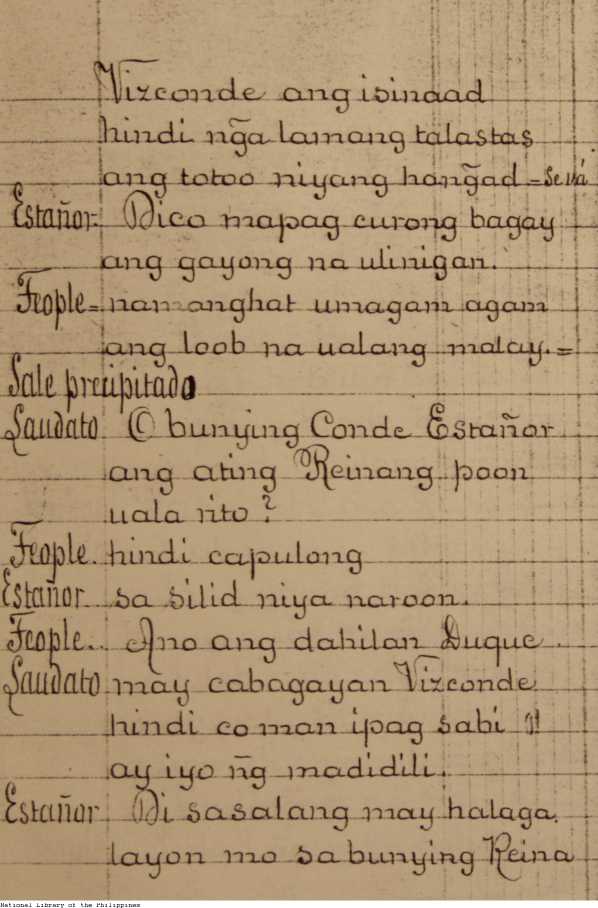 Vizconde ang isinaad
hindi ng̃a lamang talastas
ang totoo niyang hang̃ad = se vá
Estañor- Dico mapag curong bagay
ang gayong na ulinigan.
Feople= namanghat umagam agam
ang loob na ualang malay. =
Sale precipitado
Laudato O bunying Conde Estañor
ang ating Reinang poon
uala rito?
Feople. hindi capulong
Estañor sa silid niya naroon.
Feople.. Ano ang dahilan Duque.
Laudato may cabagayan Vizconde
hindi co man ipag sabi
ay iyo ng̃ madidili.
Estañor Di sasalang may halaga.
layon mo sa bunying Reina
National Library of the Philippines